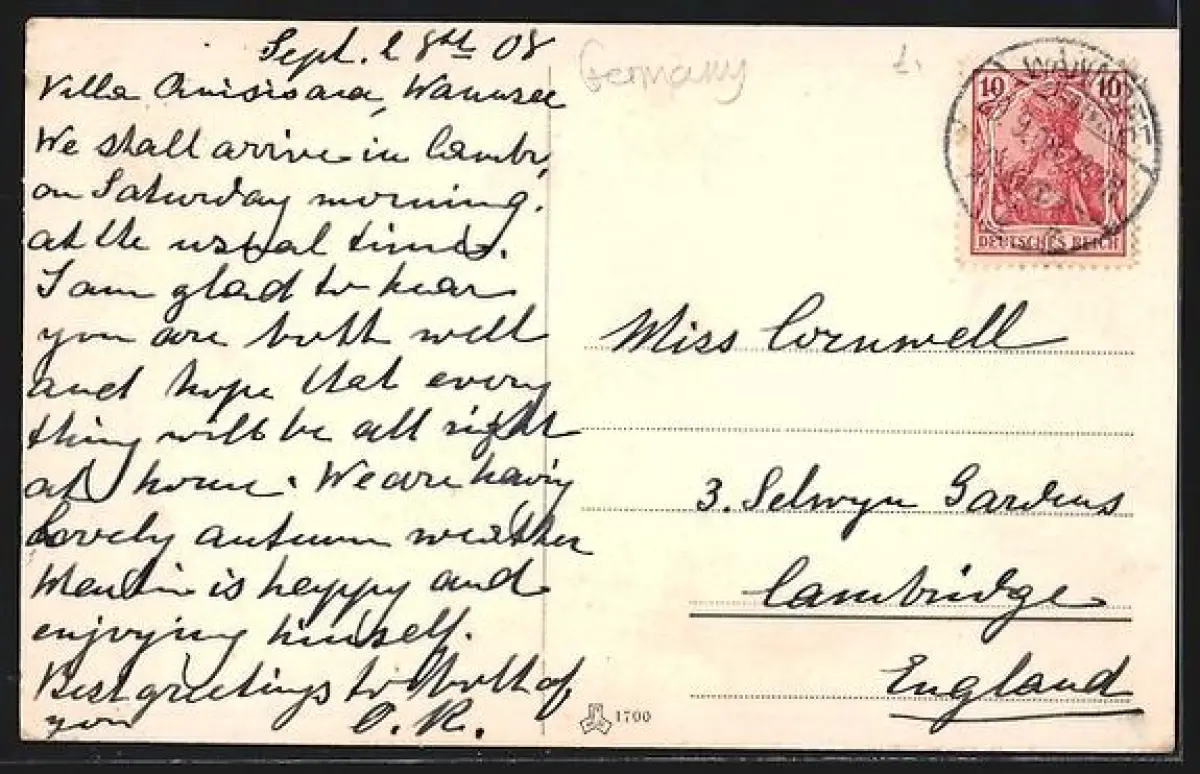 Sept. 28th 08
Villa Wannsee
We shall arrive in Cambr.
on Saturday morning.
at the usual time.
I am glad to hear
you are both well
and hope that every
thing will be all right
at home. We are having
lovely autumn weather
is happy and
enjoying himself.
Best greetings to both of
you O. R.
Germany
1.
10 10
DEUTSCHES REICH
Miss Cornwell
3. Selwyn Gardens
Cambridge
England
1700